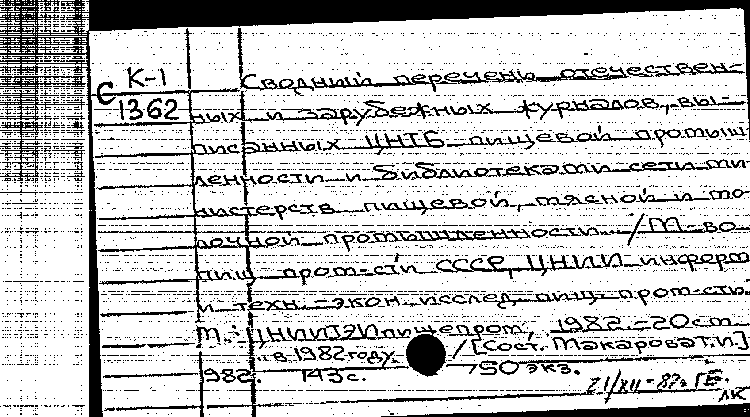 С К-1
1362
Сводный перечень отечествен-
ных и зарубежных журналов, вы-
писанных ЦНТБ пищевой промыш
ленности и библиотеками сети ми
нистерств пищевой, мясной и мо
лочной промышленности. /М-во
пищ. пром-сти СССР, ЦНИИ информ
и техн.-экон. исслед. пищ. пром-сти.
М.: ЦНИИТЭИпищепром, 1982.-20см.
"в 1982 году. /[Сост. Макарова Т.И.]
982. 143с. 150 экз.